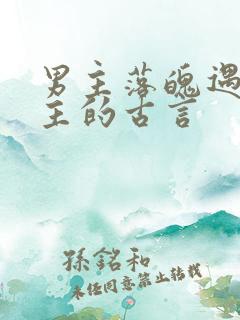 男主落魄遇
主的古言
孫銘和
未经同意禁止转载